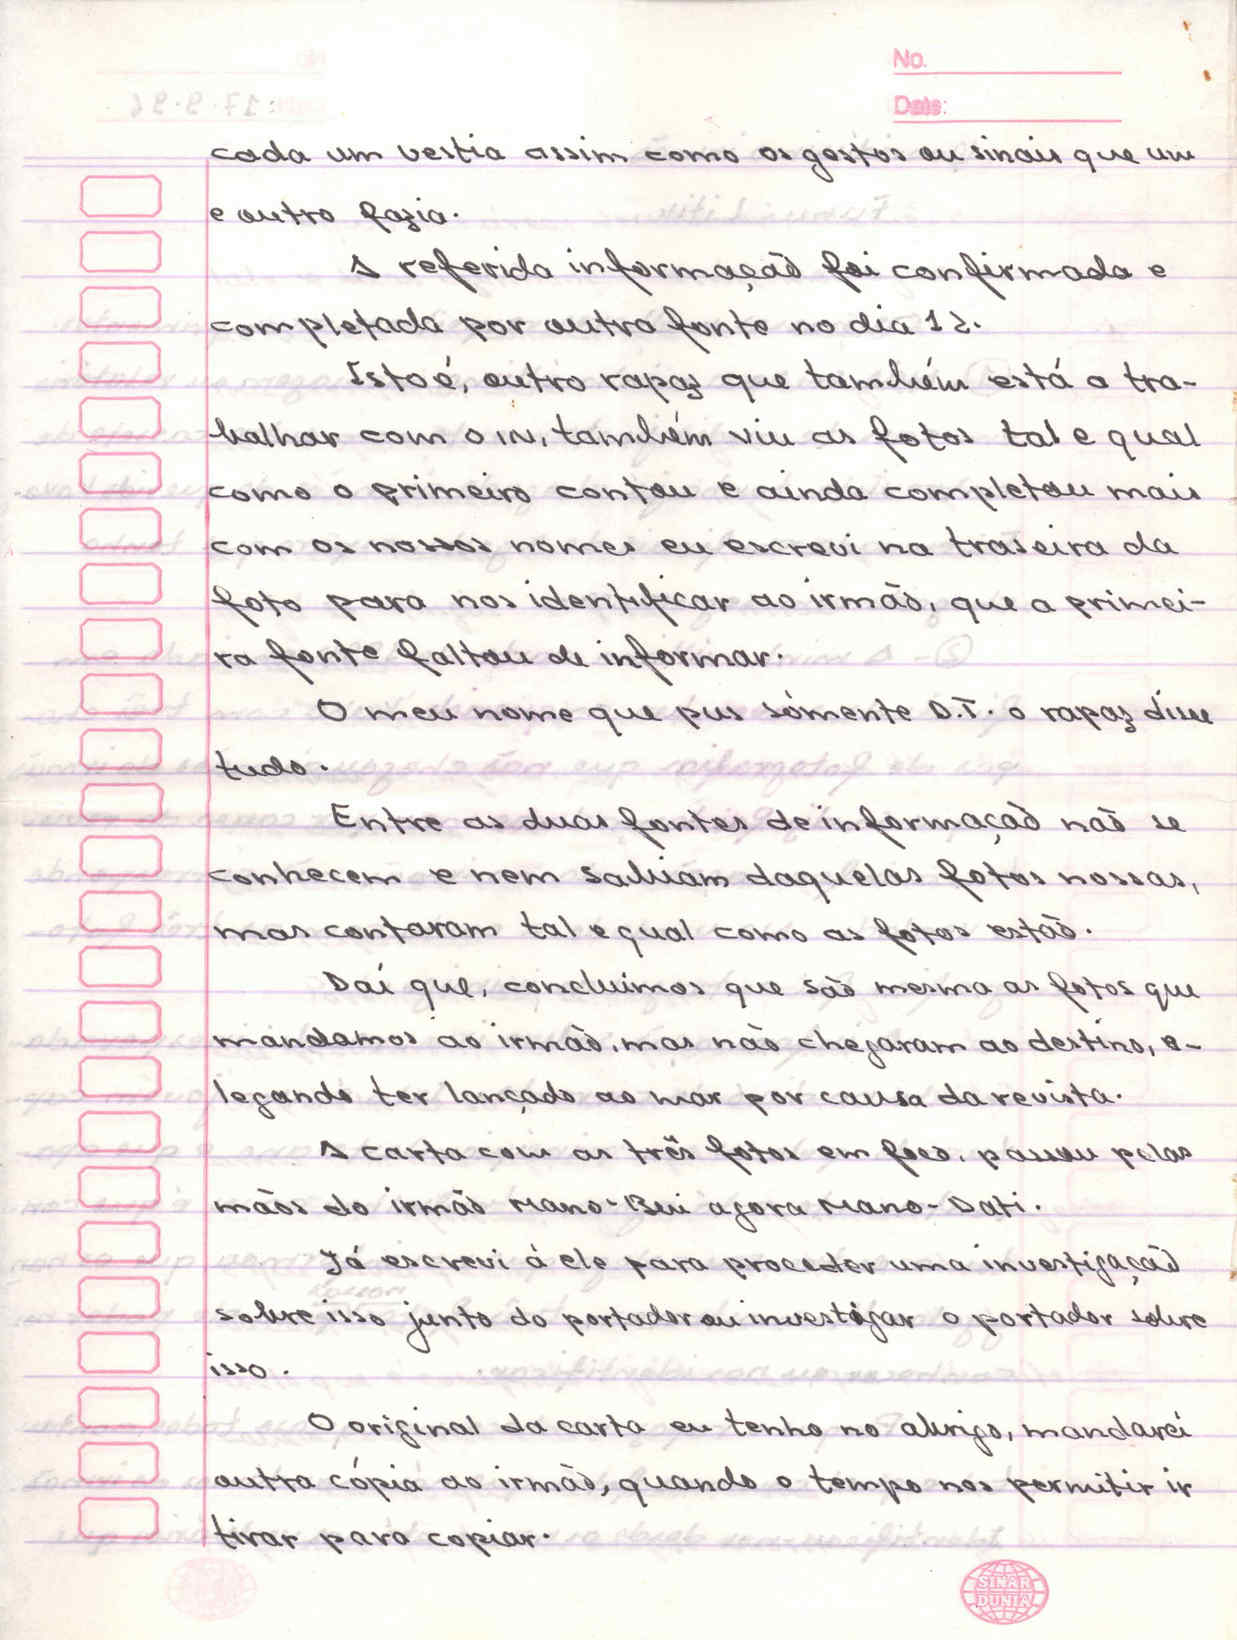 No.
Date:
cada um vestia assim como os gestos ou sinais que um
e outro fazia.
A referida informação foi confirmada e
completada por outra fonte no dia 12.
Isto é, outro rapaz que também está a tra-
balhar com o IN, também viu as fotos tal e qual
como o primeiro contou e ainda completou mais
com os nossos nomes eu escrevi na traseira da
foto para nos identificar ao irmão, que a primei-
ra fonte faltou de informar.
O meu nome que pus sómente D.T. o rapaz disse
tudo.
Entre as duas fontes de informação não se
conhecem e nem sabiam daquelas fotos nossas,
mas contaram tal e qual como as fotos estão.
Daí que, concluimos que são mesmo as fotos que
mandamos ao irmão, mas não chegaram ao destino, a-
legando ter lançado ao mar por causa da revista.
A carta com as três fotos em foco, passou pelas
mãos do irmão Mano-Bui agora Mano-Dati.
Já escrevi á ele para proceder uma investigação
sobre isso junto do portador ou investigar o portador sobre
isso.
O original da carta eu tenho no abrigo, mandarei
outra cópia ao irmão, quando o tempo nos permitir ir
tirar para copiar.
SINAR
DUNIA